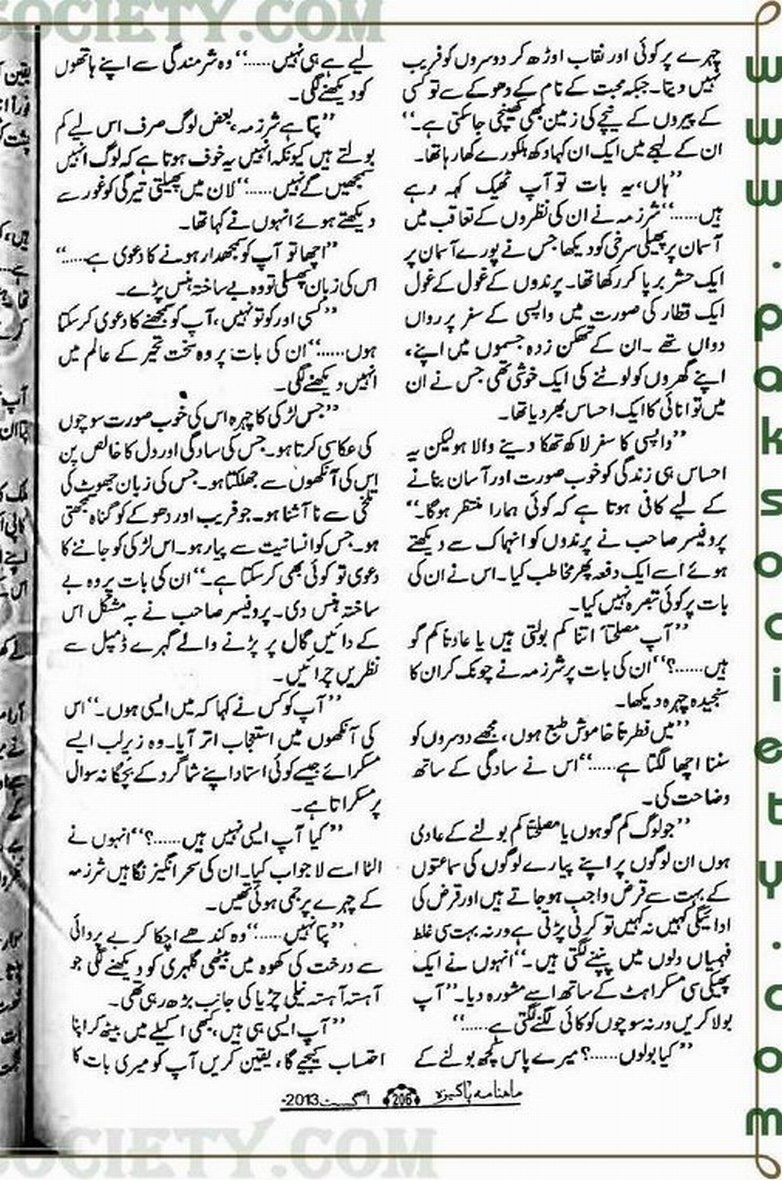 چہرے پر کوئی اور نقاب اوڑھ کر دوسروں کو فریب
نہیں دیتا۔ جبکہ محبت کے نام کے دھوکے سے تو کسی
کے پیروں کے نیچے کی زمین بھی کھینچی جاسکتی ہے۔‘‘
ان کے لہجے میں ایک ان کہا دکھ ہلکورے کھارہا تھا۔
’’ہاں، یہ بات تو آپ ٹھیک کہہ رہے
ہیں......‘‘ شرزمہ نے ان کی نظروں کے تعاقب میں
آسمان پر پھیلی سرخی کو دیکھا جس نے پورے آسمان پر
ایک حشر برپا کر رکھا تھا۔ پرندوں کے غول کے غول
ایک قطار کی صورت میں واپسی کے سفر پر رواں
دواں تھے ۔ ان کے تھکن زدہ جسموں میں اپنے،
اپنے گھروں کو لوٹنے کی ایک خوشی تھی جس نے ان
میں توانائی کا ایک احساس بھر دیا تھا۔
’’واپسی کا سفر لاکھ تھکا دینے والا ہو لیکن یہ
احساس ہی زندگی کو خوب صورت اور آسان بنانے
کے لیے کافی ہوتا ہے کہ کوئی ہمارا منتظر ہوگا۔‘‘
پروفیسر صاحب نے پرندوں کو انہماک سے دیکھتے
ہوئے اسے ایک دفعہ پھر مخاطب کیا۔ اس نے ان کی
بات پر کوئی تبصرہ نہیں کیا۔
’’آپ مصلحتاً اتنا کم بولتی ہیں یا عادتاً کم گو
ہیں......؟‘‘ ان کی بات پر شرزمہ نے چونک کر ان کا
سنجیدہ چہرہ دیکھا۔
’’میں فطرتاً خاموش طبع ہوں، مجھے دوسروں کو
سننا اچھا لگتا ہے......‘‘ اس نے سادگی کے ساتھ
وضاحت کی۔
’’جو لوگ کم گو ہوں یا مصلحتاً کم بولنے کے عادی
ہوں ان لوگوں پر اپنے پیارے لوگوں کی سماعتوں
کے بہت سے قرض واجب ہوجاتے ہیں اور قرض کی
ادائیگی کہیں نہ کہیں تو کرنی پڑتی ہے ورنہ بہت سی غلط
فہمیاں دلوں میں پنپنے لگتی ہیں۔‘‘ انہوں نے ایک
پھیکی سی مسکراہٹ کے ساتھ اسے مشورہ دیا۔ ’’آپ
بولا کریں ورنہ سوچوں کو کائی لگنے لگتی ہے......‘‘
’’کیا بولوں......؟ میرے پاس کچھ بولنے کے
لیے ہے ہی نہیں......‘‘ وہ شرمندگی سے اپنے ہاتھوں
کو دیکھنے لگی۔
’’پتا ہے شرزمہ، بعض لوگ صرف اس لیے کم
بولتے ہیں کیونکہ انہیں یہ خوف ہوتا ہے کہ لوگ انہیں
سمجھیں گے نہیں......‘‘ لان میں پھیلتی تیرگی کو غور سے
دیکھتے ہوئے انہوں نے کہا تھا۔
’’اچھا تو آپ کو سمجھدار ہونے کا دعویٰ ہے......‘‘
اس کی زبان پھسلی تو وہ بے ساختہ ہنس پڑے۔
’’کسی اور کو تو نہیں، آپ کو سمجھنے کا دعویٰ کرسکتا
ہوں......‘‘ ان کی بات پر وہ سخت تحیر کے عالم میں
انہیں دیکھنے لگی۔
’’جس لڑکی کا چہرہ اس کی خوب صورت سوچوں
کی عکاسی کرتا ہو۔ جس کی سادگی اور دل کا خالص پن
اس کی آنکھوں سے جھلکتا ہو۔ جس کی زبان جھوٹ کی
تلخی سے ناآشنا ہو۔ جو فریب اور دھوکے کو گناہ سمجھتی
ہو۔ جس کو انسانیت سے پیار ہو۔ اس لڑکی کو جاننے کا
دعویٰ تو کوئی بھی کرسکتا ہے۔‘‘ ان کی بات پر وہ بے
ساختہ ہنس دی۔ پروفیسر صاحب نے بہ مشکل اس
کے دائیں گال پر پڑنے والے گہرے ڈمپل سے
نظریں چرائیں۔
’’آپ کو کس نے کہا کہ میں ایسی ہوں۔‘‘ اس
کی آنکھوں میں استعجاب اتر آیا۔ وہ زیر لب ایسے
مسکرائے جیسے کوئی استاد اپنے شاگرد کے بچگانہ سوال
پر مسکراتا ہے۔
’’کیا آپ ایسی نہیں ہیں......؟‘‘ انہوں نے
الٹا اسے لاجواب کیا۔ ان کی سحر انگیز نگاہیں شرزمہ
کے چہرے پر جمی ہوئی تھیں۔
’’پتا نہیں......‘‘ وہ کندھے اچکا کر بے پروائی
سے درخت کی کھوہ میں بیٹھی گلہری کو دیکھنے لگی جو
آہستہ آہستہ نیلی چڑیا کی جانب بڑھ رہی تھی۔
’’آپ ایسی ہی ہیں، کبھی اکیلے میں بیٹھ کر اپنا
احتساب کیجیے گا، یقین کریں آپ کو میری بات کا
ماہنامہ پاکیزہ 206 اگست 2013ء
www.paksociety.com
SOCIETY.COM
SOCIETY.COM